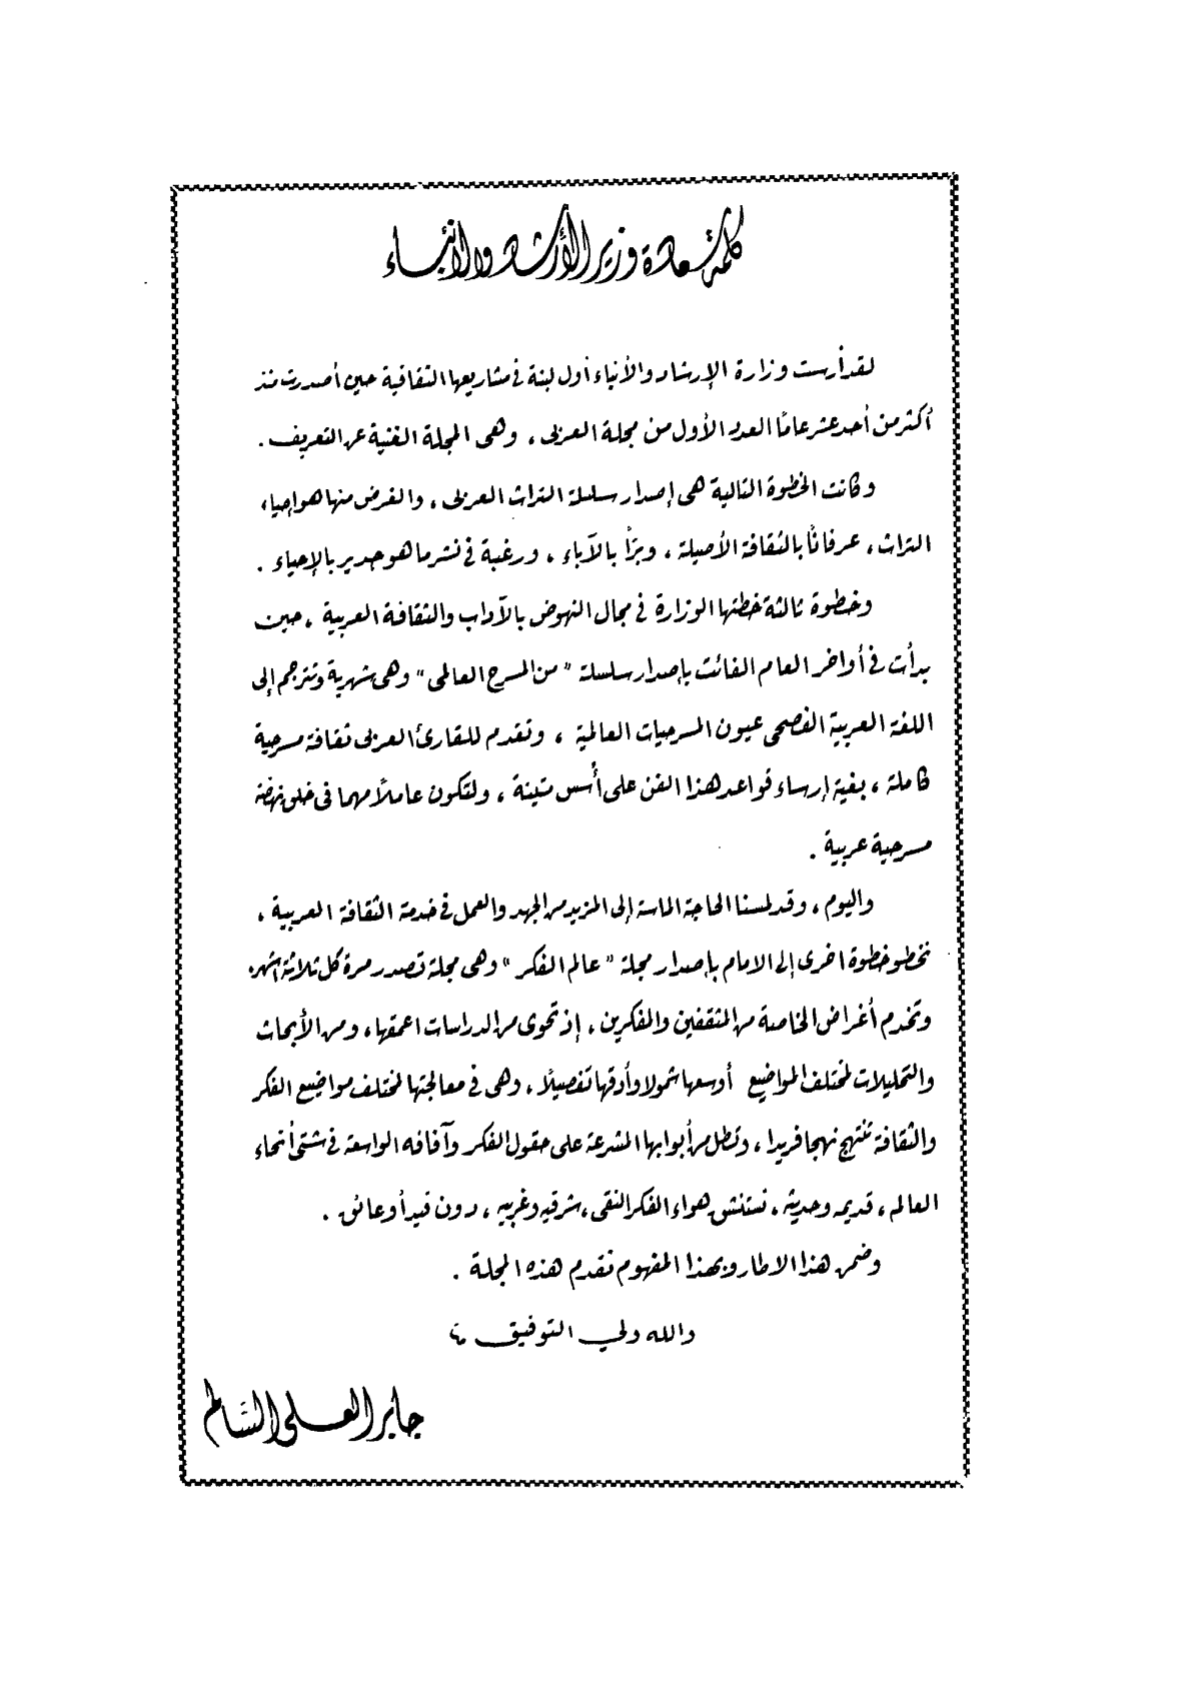 كلمة سعادة وزير الأرشاد والانباء
لقد أرست وزارة الإرشاد والأنباء أول لبنة في مشاريعها الثقافية حين أصدرت منذ
أكثر من أحد عشر عامًا العدد الأول من مجلة العربى ، وهى المجلة الغنية عن التعريف .
وكانت الخطوة التالية هى إصدار سلسلة التراث العربى ، والغرض منها هو إحياء
التراث ، عرفانًا بالثقافة الأصيلة ، وبرًّا بالآباء ، ورغبة في نشر ما هو جدير بالإحياء .
وخطوة ثالثة خطتها الوزارة في مجال النهوض بالآداب والثقافة العربية ، حين
بدأت في أواخر العام الفائت بإصدار سلسلة " من المسرح العالمى " وهى شهرية وتترجم إلى
اللغة العربية الفصحى عيون المسرحيات العالمية ، وتقدم للقارئ العربى ثقافة مسرحية
كاملة ، بغية إرساء قواعد هذا الفن على أُسس متينة ، ولتكون عاملاً مهما فى خلق نهضة
مسرحية عربية .
واليوم ، وقد لمسنا الحاجة الماسة إلى المزيد من الجهد والعمل في خدمة الثقافة العربية ،
نخطو خطوة اخرى إلى الامام بإصدار مجلة " عالم الفكر " وهى مجلة تصدر مرة كل ثلاثة اشهر
وتخدم أغراض الخاصة من المثقفين والمفكرين ، إذ تحوى من الدراسات اعمقها ، ومن الأبحاث
والتحليلات لمختلف المواضيع أوسعها شمولا وأدقها تفصيلاً ، وهى في معالجتها لمختلف مواضيع الفكر
والثقافة تنتهج نهجا فريدا ، وتطل من أبوابها المشرعة على حقول الفكر وآفاقه الواسعة في شتى أنحاء
العالم ، قديمه وحديثه ، تستنشق هواء الفكر النقى ، شرقيه وغربيه ، دون قيد أو عائق .
وضمن هذا الاطار وبهذا المفهوم نقدم هذه المجلة .
والله ولي التوفيق
جابر العلى السالم